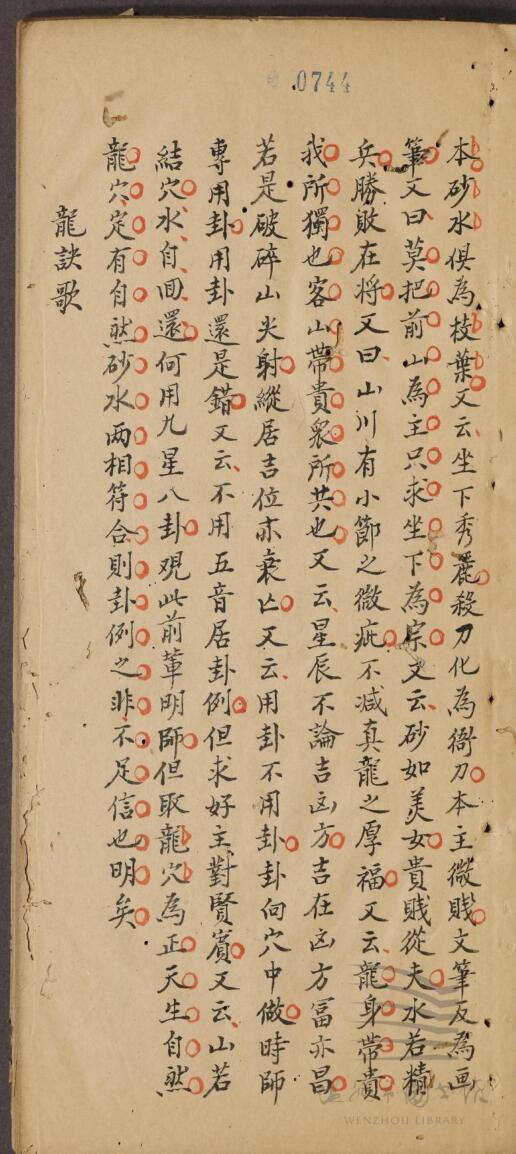 0744
本砂水俱為枝葉又云坐下秀麗殺刀化為衙刀本主微賤文筆反為画
筆又曰莫把前山為主只求坐下為宗又云砂如美女貴賤從夫水若精
兵勝敗在將又曰山川有小節之微疵不減真龍之厚福又云龍身帶貴
我所獨也客山帶貴衆所共也又云星辰不論吉凶方吉在凶方富亦昌
若是破碎山尖射縱居吉位亦衰亡又云用卦不用卦卦向穴中做時師
專用卦用卦還是錯又云不用五音居卦例但求好主對賢賓又云山若
結穴水自回還何用九星八卦观此前軰明師但取龍穴為正天生自然
龍穴定有自然砂水两相符合則卦例之非不足信也明矣
龍訣歌
溫州市圖書館
WENZHOU LIBRARY